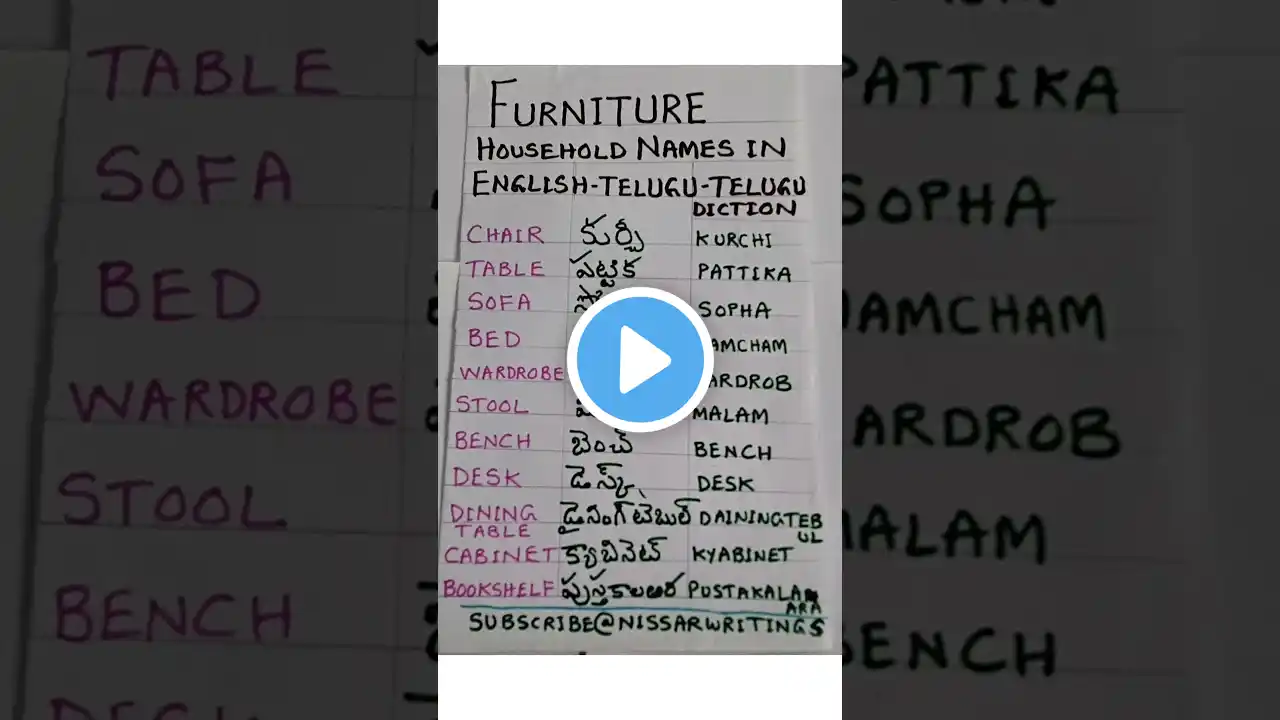 FURNITURE
HOUSEHOLD NAMES IN
ENGLISH-TELUGU-TELUGU
DICTION
CHAIR కుర్చీ KURCHI
TABLE పట్టిక PATTIKA
SOFA SOPHA
BED AMCHAM
WARDROBE ARDROB
STOOL MALAM
BENCH బెంచ్ BENCH
DESK డెస్క్ DESK
DINING TABLE డైనింగ్ టేబుల్ DAININGTEBUL
CABINET క్యాబినెట్ KYABINET
BOOKSHELF పుస్తకాలఅర PUSTAKALA ARA
SUBSCRIBE@NISSARWRITINGS
TABLE PATTIKA
SOFA SOPHA
BED AMCHAM
WARDROBE ARDROB
STOOL ALAM
BENCH BENCH
DESK